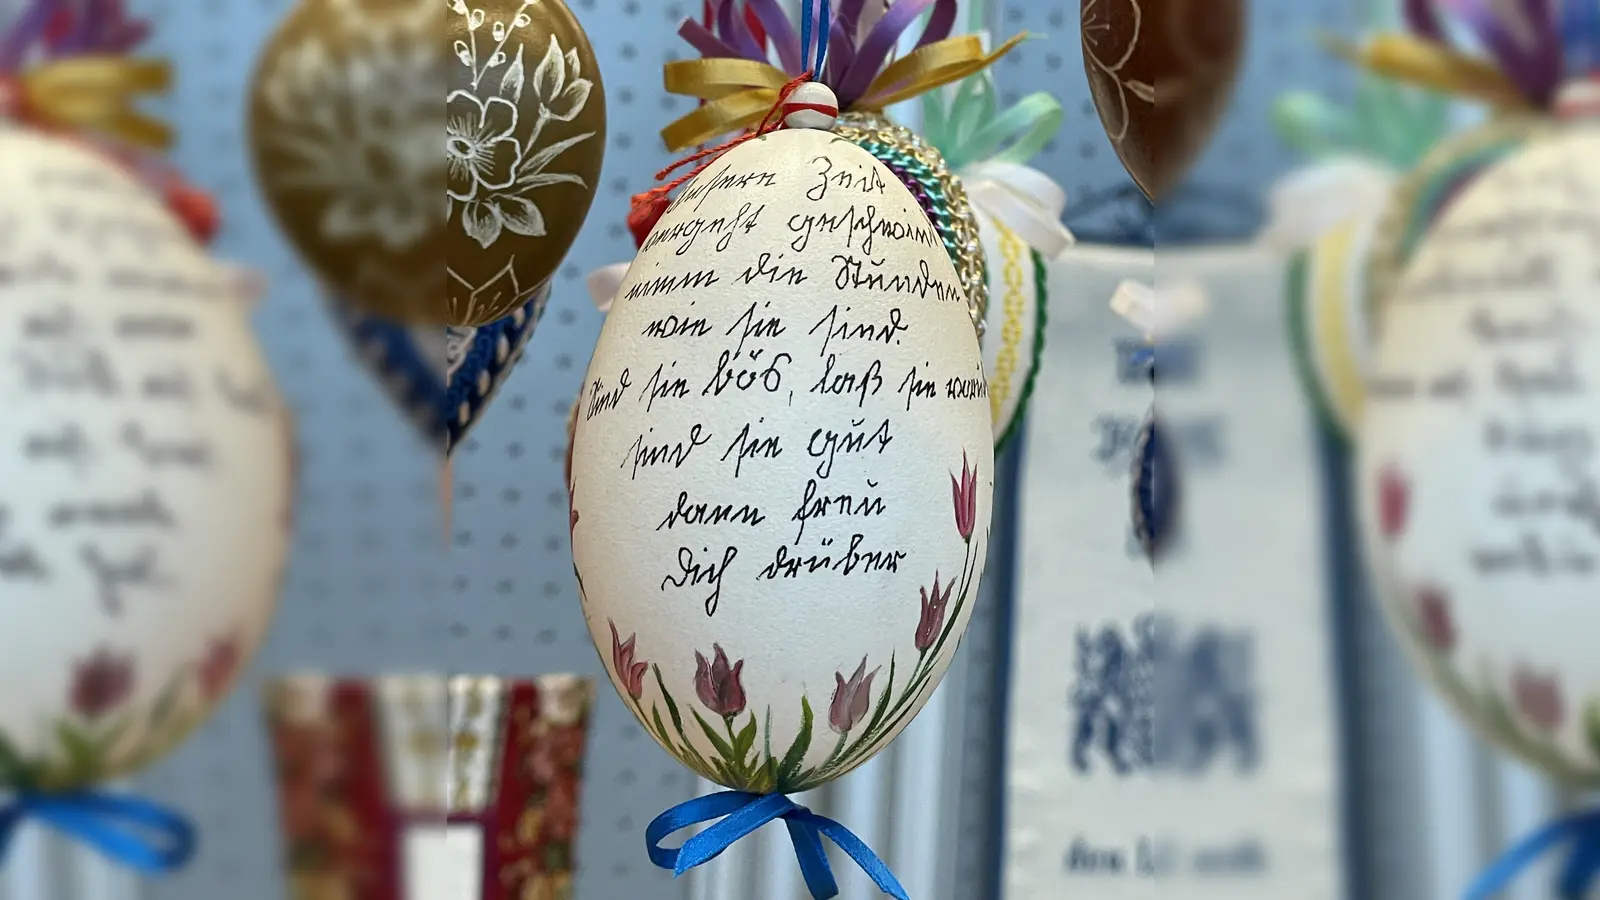 Unsere Zeit
vergeht geschwind
nimm die Stunden
wie sie sind.
Sind sie bös, laß sie
sind sie gut
dann freu
Dich drüber